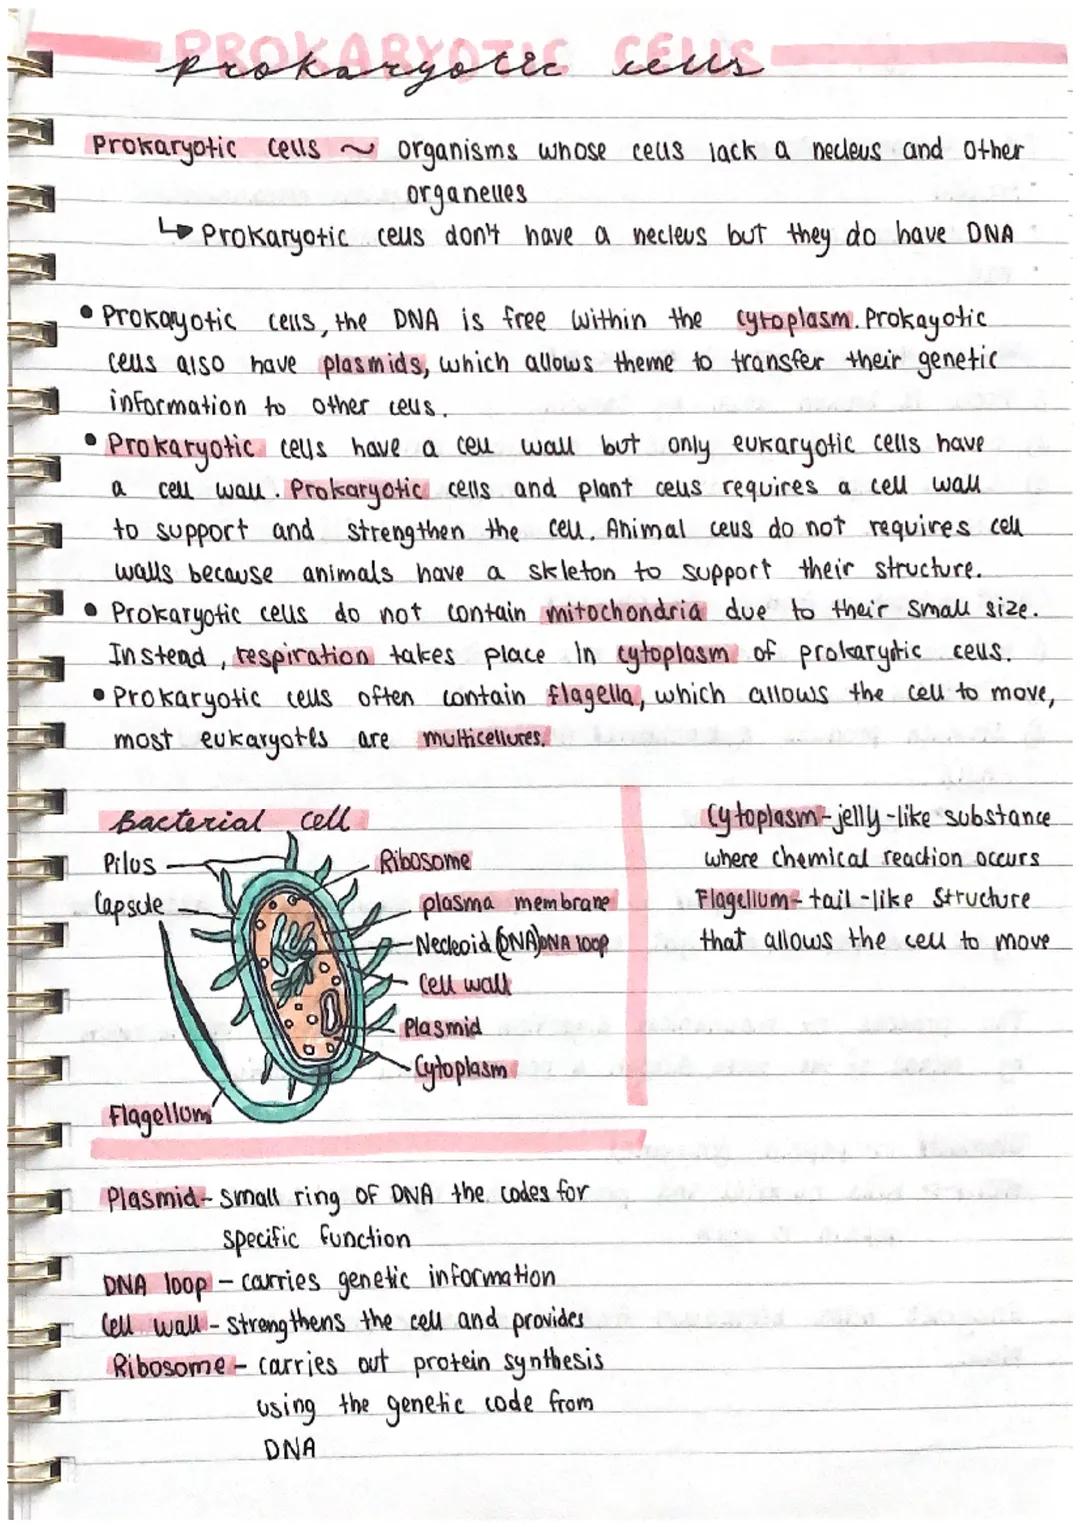 PROKARYOTIC CELLS
prokaryotic cells
Prokaryotic cells ~ organisms whose cells lack a necleus and other
organelles
↳ Prokaryotic cells don't have a necleus but they do have DNA
• Prokayotic cells, the DNA is free within the cytoplasm. Prokayotic
cells also have plasmids, which allows theme to transfer their genetic
information to other cells.
• Prokaryotic cells have a cell wall but only eukaryotic cells have
a cell wall. Prokaryotic cells and plant cells requires a cell wall
to support and strengthen the cell. Animal cells do not requires cell
walls because animals have a skleton to support their structure.
• Prokaryotic cells do not contain mitochondria due to their small size.
Instead, respiration takes place in cytoplasm of prokarytic cells.
• Prokaryotic cells often contain flagella, which allows the cell to move,
most eukaryotes are multicellures.
Bacterial cell
Pilus
Capsule
Ribosome
plasma membrane
Necleoid (DNA) DNA loop
Cell wall
Plasmid
Cytoplasm
Flagellum
Cytoplasm - jelly-like substance
where chemical reaction occurs
Flagellum - tail-like structure
that allows the cell to move
Plasmid - small ring of DNA the codes for
specific function
DNA loop - carries genetic information
Cell wall - strengthens the cell and provides
Ribosome - carries out protein synthesis
using the genetic code from
DNA